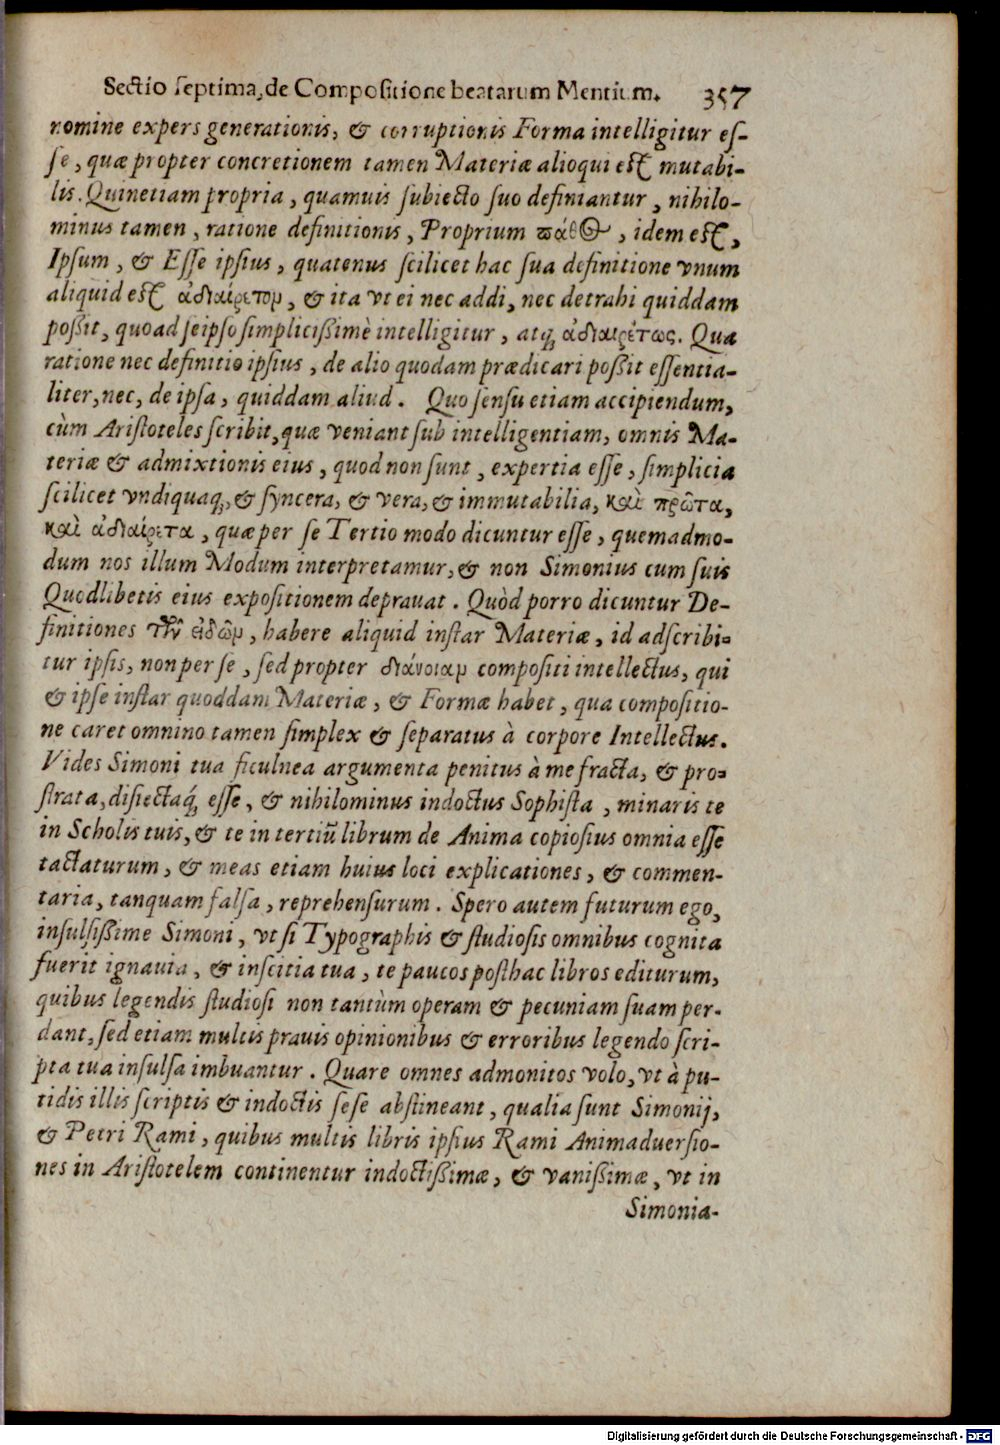 Sectio septima, de Compositione beatarum Mentium. 357
nomine expers generationis, & corruptionis Forma intelligitur es-
se, quæ propter concretionem tamen Materiæ alioqui est mutabi-
lis. Quinetiam propria, quamuis subiecto suo definiantur, nihilo-
minus tamen, ratione definitionis, Proprium πάθος, idem est,
Ipsum, & Esse ipsius, quatenus scilicet hac sua definitione vnum
aliquid est ἀδιαίρετον, & ita vt ei nec addi, nec detrahi quiddam
possit, quoad seipso simplicissimè intelligitur, atq; ἀδιαιρέτως. Qua
ratione nec definitio ipsius, de alio quodam prædicari possit essentia-
liter, nec, de ipsa, quiddam aliud. Quo sensu etiam accipiendum,
cùm Aristoteles scribit, quæ veniant sub intelligentiam, omnis Ma-
teriæ & admixtionis eius, quod non sunt, expertia esse, simplicia
scilicet vndiquaq;, & syncera, & vera, & immutabilia, καὶ πρῶτα,
καὶ ἀδιαίρετα, quæ per se Tertio modo dicuntur esse, quemadmo-
dum nos illum Modum interpretamur, & non Simonius cum suis
Quodlibetis eius expositionem deprauat. Quòd porro dicuntur De-
finitiones τῶν εἰδῶν, habere aliquid instar Materiæ, id adscribi-
tur ipsis, non per se, sed propter διάνοιαν compositi intellectus, qui
& ipse instar quoddam Materiæ, & Formæ habet, qua compositio-
ne caret omnino tamen simplex & separatus à corpore Intellectus.
Vides Simoni tua ficulnea argumenta penitus à me fracta, & pro-
strata, disiectaq́; esse, & nihilominus indoctus Sophista, minaris te
in Scholis tuis, & te in tertiū librum de Anima copiosius omnia esse
tactaturum, & meas etiam huius loci explicationes, & commen-
taria, tanquam falsa, reprehensurum. Spero autem futurum ego,
insulsissime Simoni, vt si Typographis & studiosis omnibus cognita
fuerit ignauia, & inscitia tua, te paucos posthac libros editurum,
quibus legendis studiosi non tantùm operam & pecuniam suam per-
dant, sed etiam multis prauis opinionibus & erroribus legendo scri-
pta tua insulsa imbuantur. Quare omnes admonitos volo, vt à pu-
tidis illis scriptis & indoctis sese abstineant, qualia sunt Simonij,
& Petri Rami, quibus multis libris ipsius Rami Animaduersio-
nes in Aristotelem continentur indoctissimæ, & vanissimæ, vt in
Simonia-
Digitalisierung gefördert durch die Deutsche Forschungsgemeinschaft - DFG